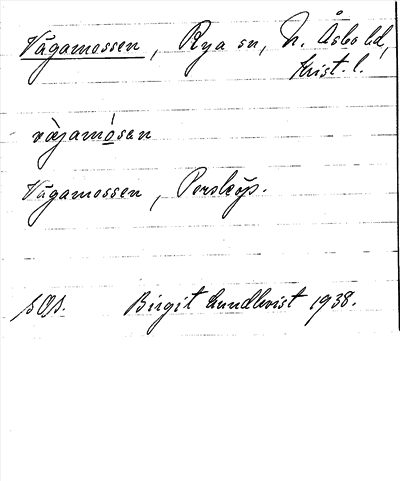 Vägamossen, Rya sn, N. Åsbo hd,
Krist. l.
vægamósen
Vägamossen, Porsköp.
Birgit Lundkvist 1938.